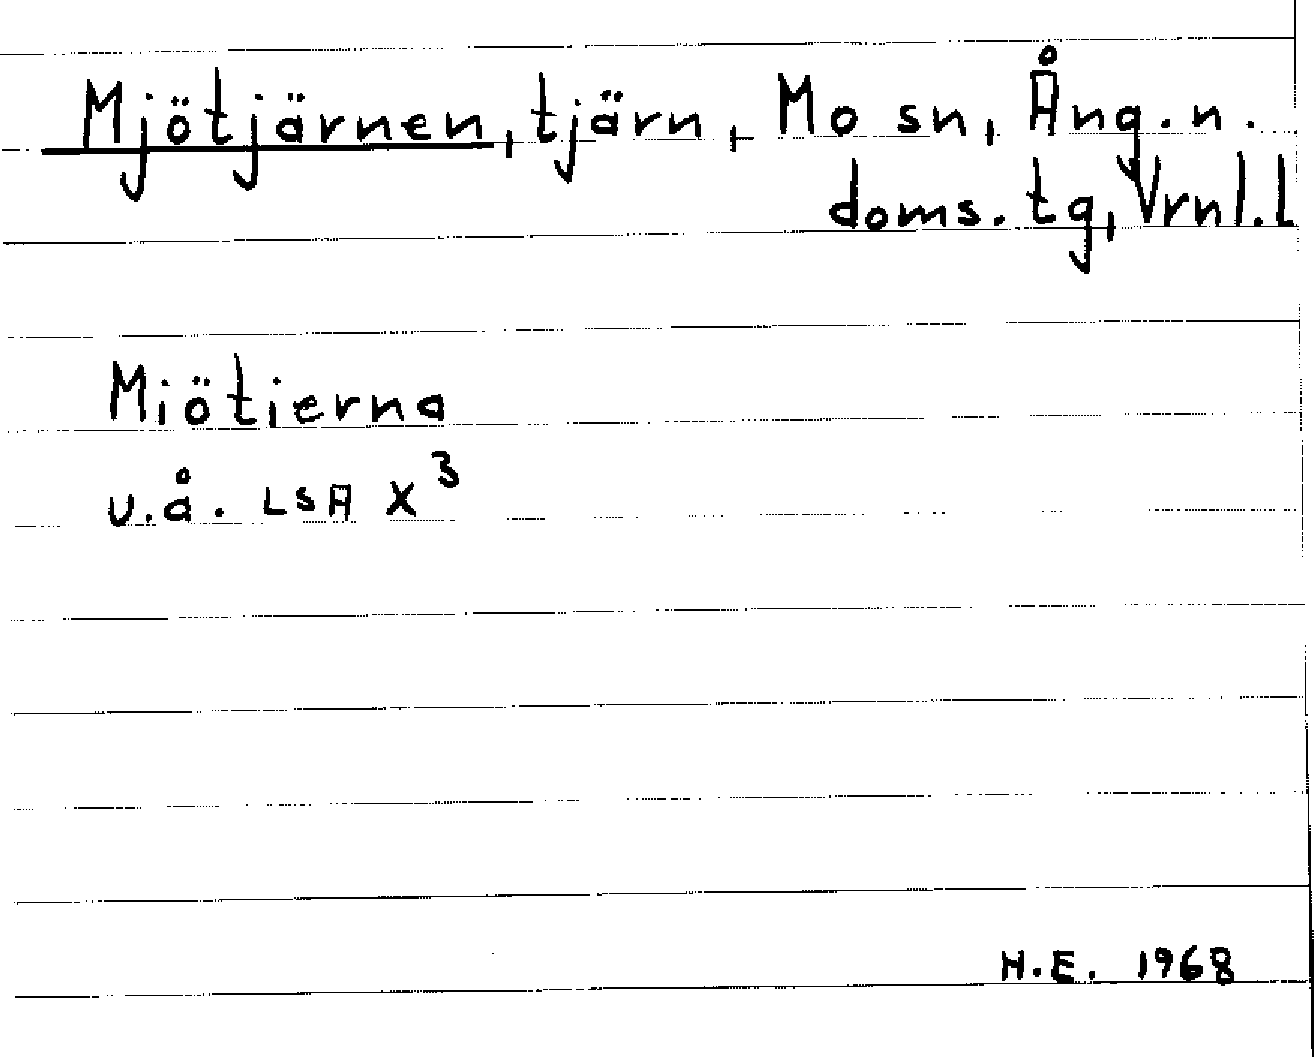 Mjötjärnen, tjärn, Mo sn, Ång. n.
doms. tg, Vrnl. l
Miötierna
u.å. LSA X³
H.E. 1968